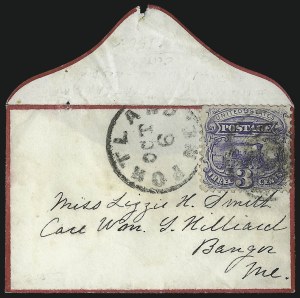 PORTLAND
OCT
6
UNITED STATES
POSTAGE
3
THREE CENTS
Miss Lizzie H. Smith
Care Wm. T. Hilliard
Bangor
Me.